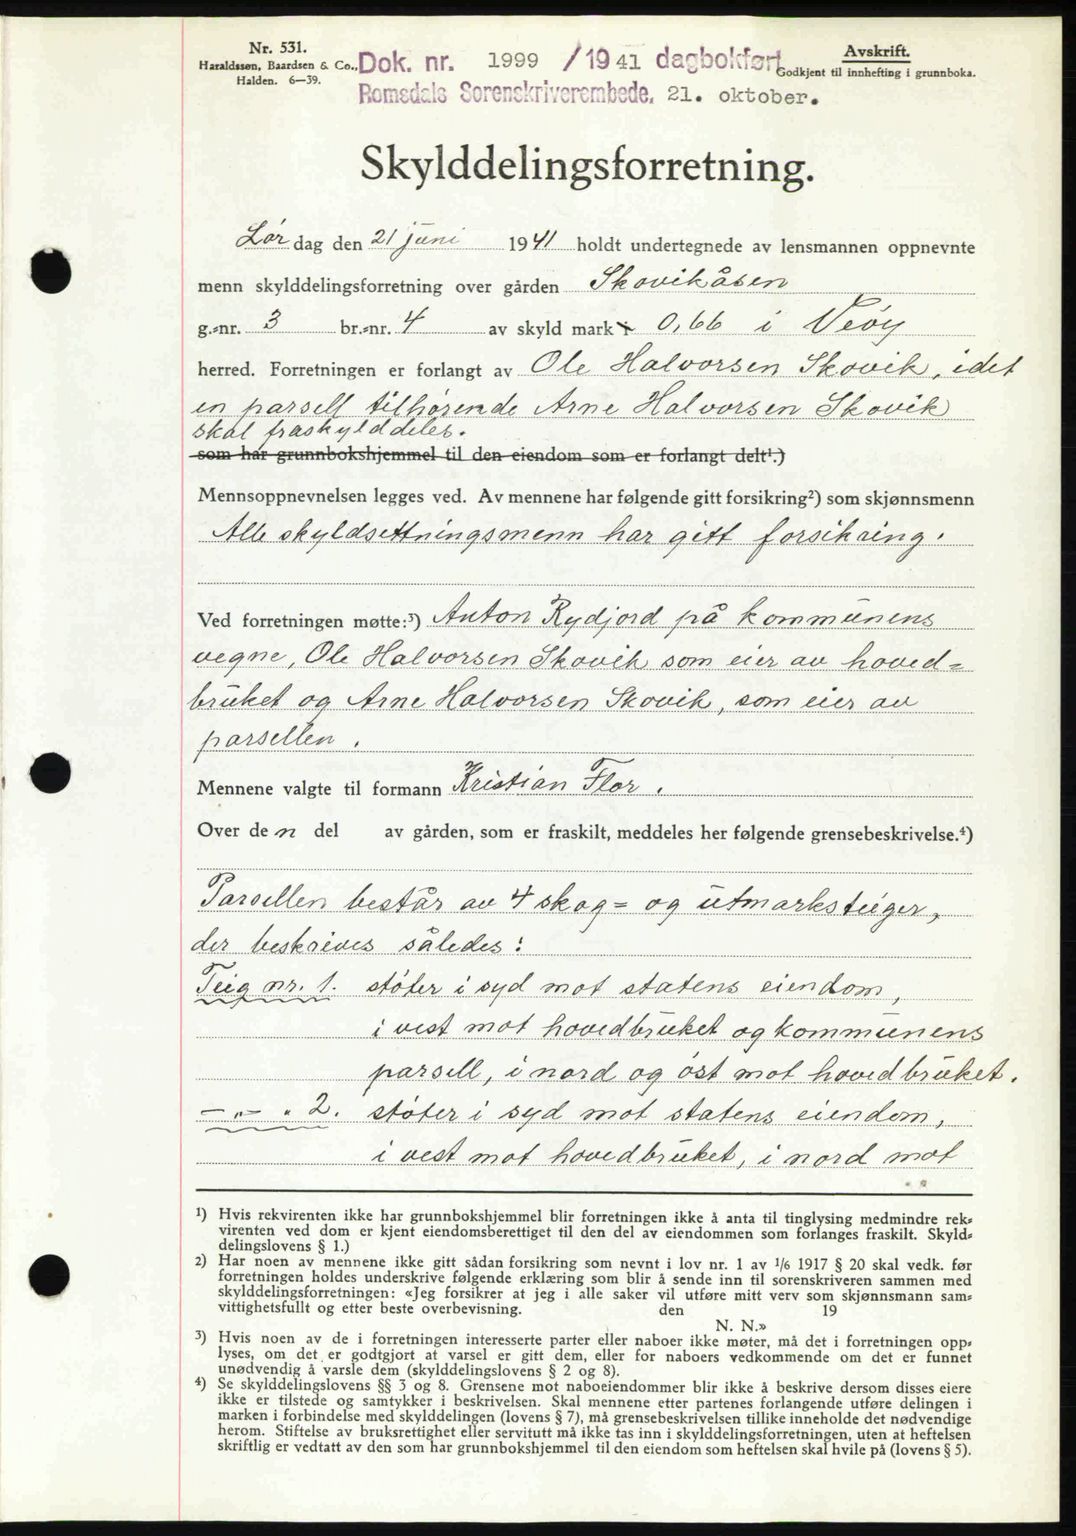 Nr. 531.
Haraldssøn, Baardsen & Co.,
Halden. 6—39.
Dok. nr. 1999 / 1941 dagbokført
Romsdals Sorenskriverembede, 21. oktober.
Avskrift.
Godkjent til innhefting i grunnboka.
Skylddelingsforretning.
Lør dag den 21 juni 1941 holdt undertegnede av lensmannen oppnevnte
menn skylddelingsforretning over gården Skovikåsen
g.-nr. 3 br.-nr. 4 av skyld mark 0,66 i Veøy
herred. Forretningen er forlangt av Ole Halvorsen Skovik, idet
en parsell tilhørende Arne Halvorsen Skovik
skal fraskylddeles.
som har grunnbokshjemmel til den eiendom som er forlangt delt¹.)
Mennsoppnevnelsen legges ved. Av mennene har følgende gitt forsikring²) som skjønnsmenn
Alle skyldsettningsmenn har gitt forsikring.
Ved forretningen møtte:³) Anton Rydjord på kommunens
vegne, Ole Halvorsen Skovik som eier av hoved=
bruket og Arne Halvorsen Skovik, som eier av
parsellen.
Mennene valgte til formann Kristian Flor.
Over den del av gården, som er fraskilt, meddeles her følgende grensebeskrivelse.⁴)
Parsellen består av 4 skog= og utmarksteiger,
der beskrives således:
Teig nr. 1. støter i syd mot statens eiendom,
i vest mot hovedbruket og kommunens
parsell, i nord og øst mot hovedbruket.
— „ — „ 2. støter i syd mot statens eiendom,
i vest mot hovedbruket, i nord mot
¹) Hvis rekvirenten ikke har grunnbokshjemmel blir forretningen ikke å anta til tinglysing medmindre rek-
virenten ved dom er kjent eiendomsberettiget til den del av eiendommen som forlanges fraskilt. Skyld-
delingslovens § 1.)
²) Har noen av mennene ikke gitt sådan forsikring som nevnt i lov nr. 1 av 1/6 1917 § 20 skal vedk. før
forretningen holdes underskrive følgende erklæring som blir å sende inn til sorenskriveren sammen med
skylddelingsforretningen: «Jeg forsikrer at jeg i alle saker vil utføre mitt verv som skjønnsmann sam-
vittighetsfullt og etter beste overbevisning. den 19
N. N.»
³) Hvis noen av de i forretningen interesserte parter eller naboer ikke møter, må det i forretningen opp-
lyses, om det er godtgjort at varsel er gitt dem, eller for naboers vedkommende om det er funnet
unødvendig å varsle dem (skylddelingslovens § 2 og 8).
⁴) Se skylddelingslovens §§ 3 og 8. Grensene mot naboeiendommer blir ikke å beskrive dersom disses eiere
ikke er tilstede og samtykker i beskrivelsen. Skal mennene etter partenes forlangende utføre delingen i
marken i forbindelse med skylddelingen (lovens § 7), må grensebeskrivelsen tillike inneholde det nødvendige
herom. Stiftelse av bruksrettighet eller servitutt må ikke tas inn i skylddelingsforretningen, uten at heftelsen
skriftlig er vedtatt av den som har grunnbokshjemmel til den eiendom som heftelsen skal hvile på (lovens § 5).